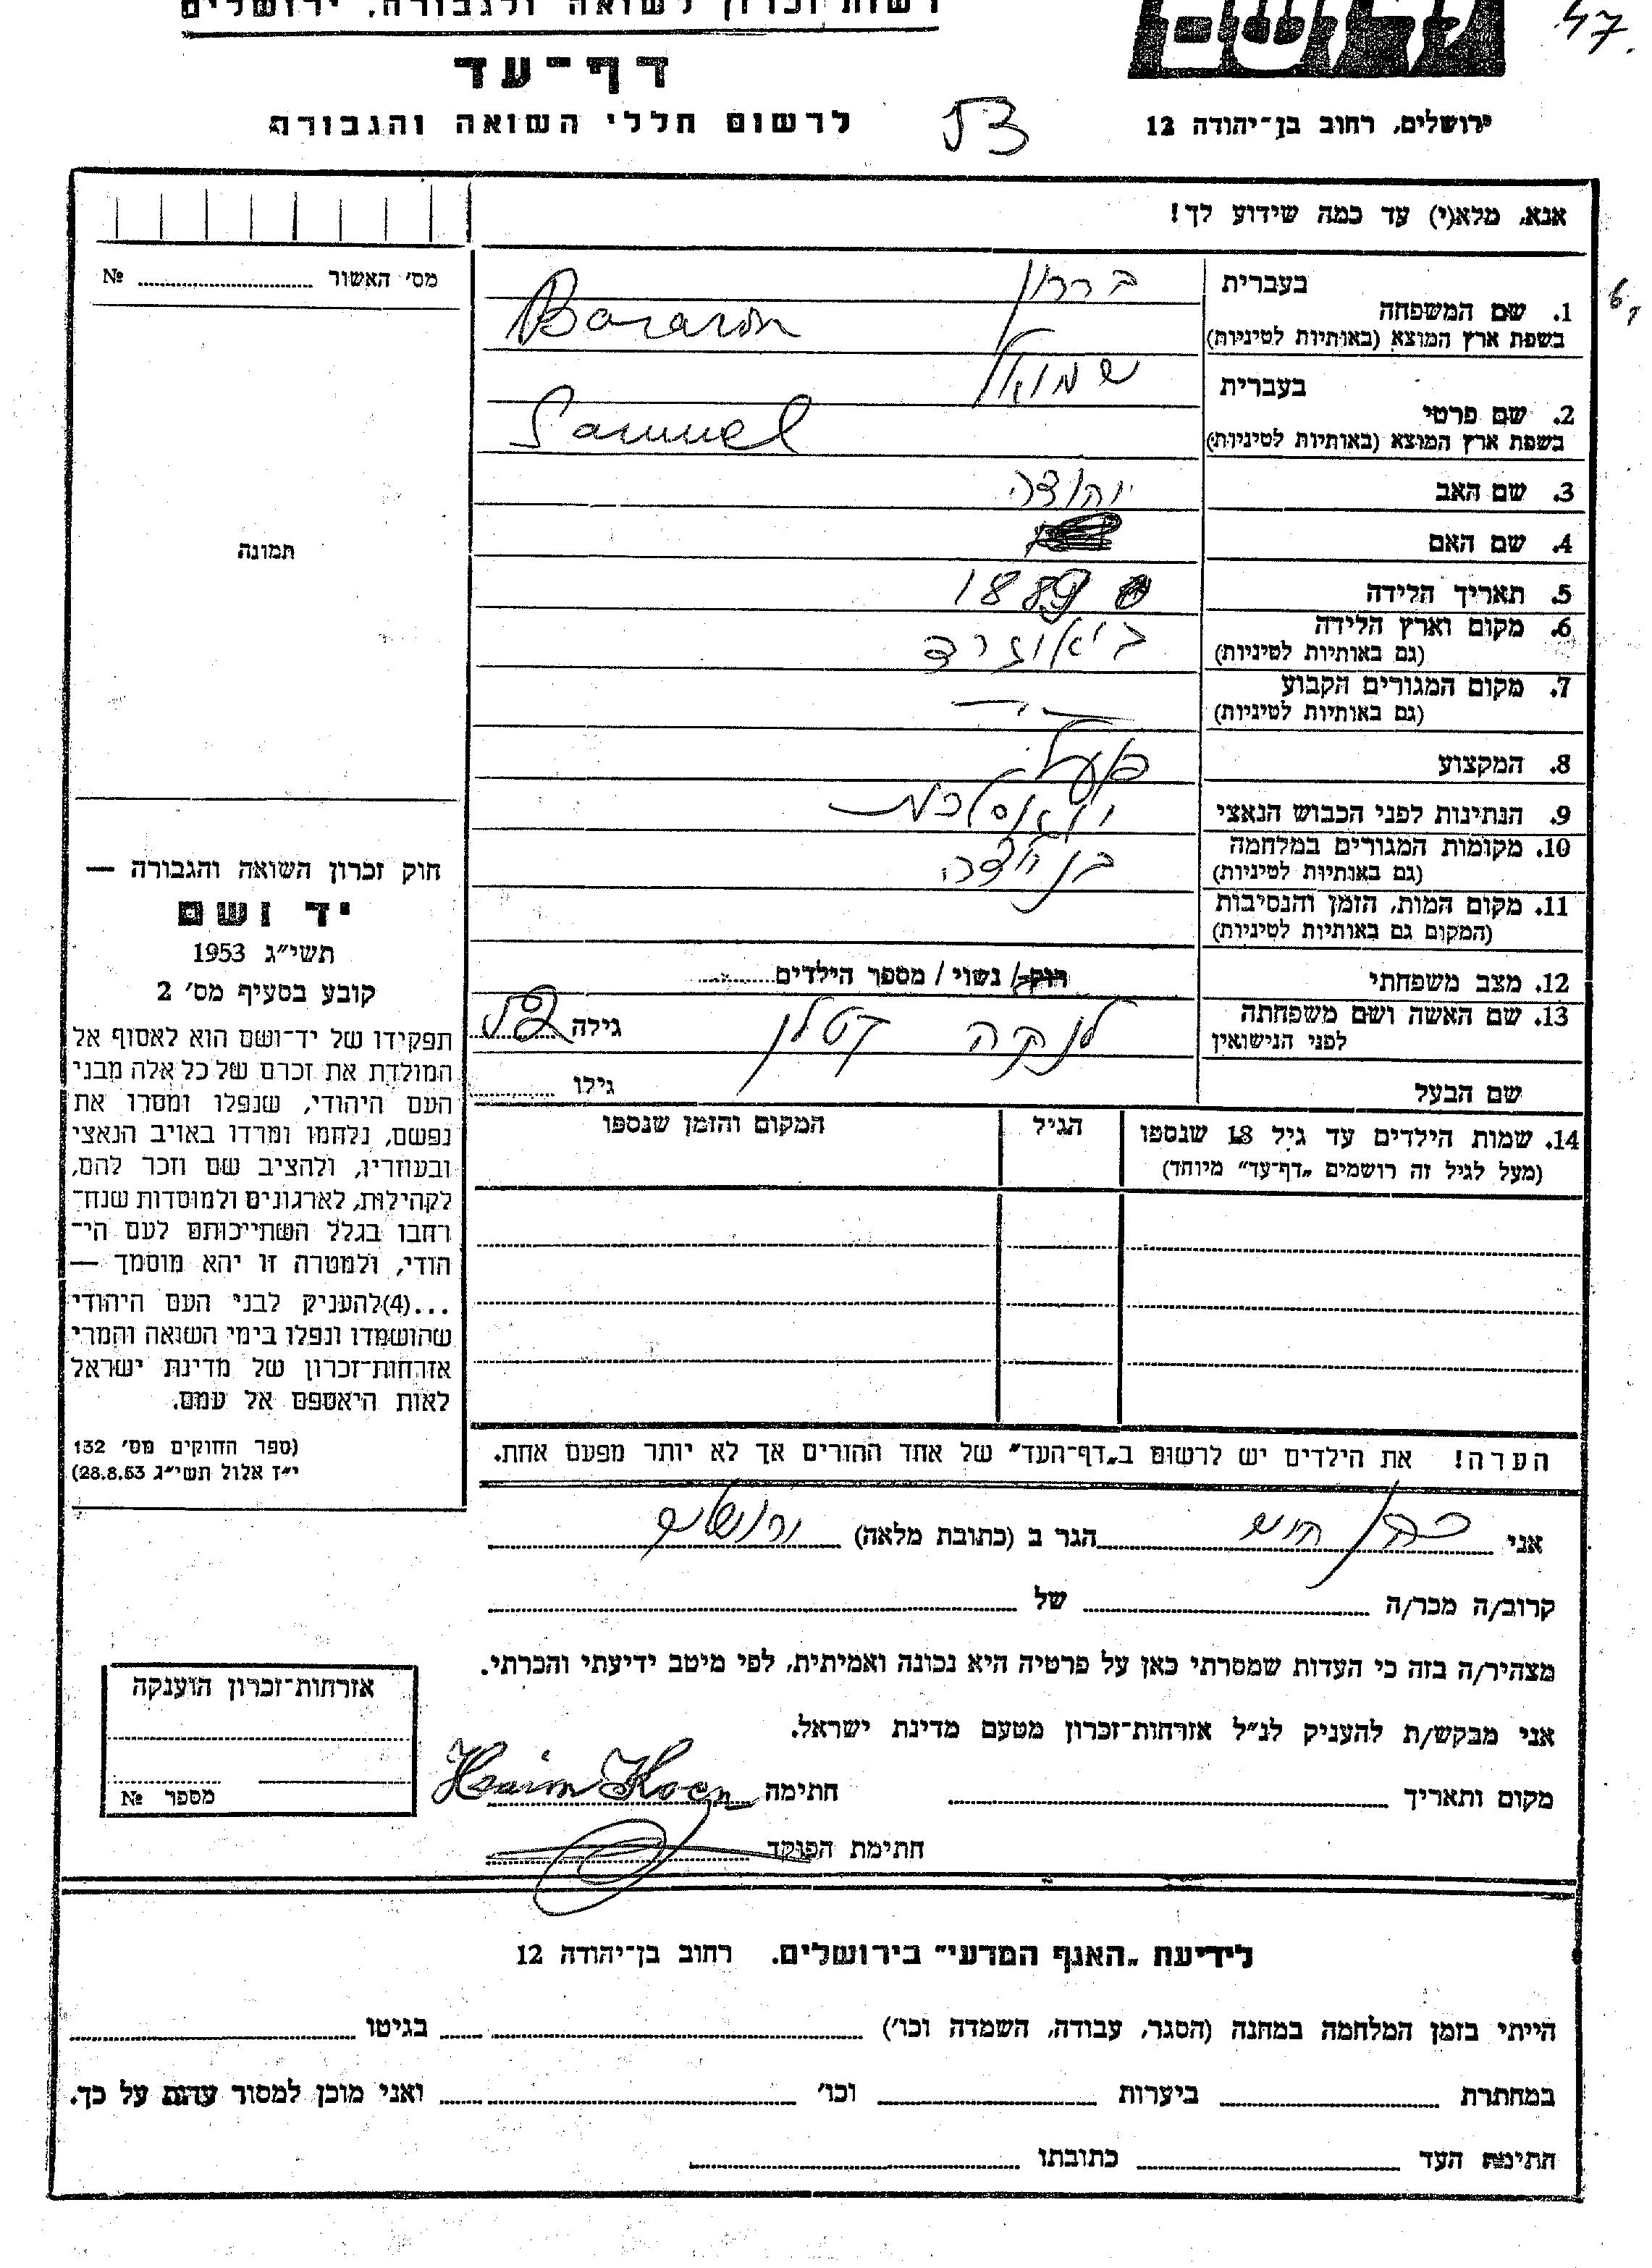 רשות זכרון לשואה ולגבורה, ירושלים
47.
דף־עד
לרשום חללי השואה והגבורה
53
ירושלים, רחוב בן־יהודה 12
אנא, מלא(י) עד כמה שידוע לך!
מס׳ האשור № 
1. שם המשפחה
בעברית בררון
בשפת ארץ המוצא (באותיות לטיניות) Bararon
2. שם פרטי
בעברית שמואל
בשפת ארץ המוצא (באותיות לטיניות) Samuel
3. שם האב יהודה
4. שם האם
5. תאריך הלידה 1889
6. מקום וארץ הלידה
(גם באותיות לטיניות)
7. מקום המגורים הקבוע
(גם באותיות לטיניות)
8. המקצוע פועל
9. הנתינות לפני הכבוש הנאצי
10. מקומות המגורים במלחמה
(גם באותיות לטיניות)
11. מקום המות, הזמן והנסיבות
(המקום גם באותיות לטיניות)
12. מצב משפחתי רווק / נשוי / מספר הילדים
13. שם האשה ושם משפחתה לנקה קטלן גילה
לפני הנישואין
שם הבעל גילו
14. שמות הילדים עד גיל 18 שנספו הגיל המקום והזמן שנספו
(מעל לגיל זה רושמים „דף־עד״ מיוחד)
הערה! את הילדים יש לרשום ב„דף־העד״ של אחד ההורים אך לא יותר מפעם אחת.
תמונה
חוק זכרון השואה והגבורה —
יד ושם
תשי״ג 1953
קובע בסעיף מס׳ 2
תפקידו של יד־ושם הוא לאסוף אל
המולדת את זכרם של כל אלה מבני
העם היהודי, שנפלו ומסרו את
נפשם, נלחמו ומרדו באויב הנאצי
ובעוזריו, ולהציב שם וזכר להם,
לקהילות, לארגונים ולמוסדות שנח־
רחבו בגלל השתייכותם לעם הי־
הודי, ולמטרה זו יהא מוסמך —
...(4)להעניק לבני העם היהודי
שהושמדו ונפלו בימי השואה והמרי
אזרחות־זכרון של מדינת ישראל
לאות היאספם אל עמם.
(ספר החוקים מס׳ 132
י״ז אלול תשי״ג 28.8.53)
אני כהן חיים הגר ב (כתובת מלאה) ירושלים
קרוב/ה מכר/ה של
מצהיר/ה בזה כי העדות שמסרתי כאן על פרטיה היא נכונה ואמיתית, לפי מיטב ידיעתי והכרתי.
אני מבקש/ת להעניק לנ״ל אזרחות־זכרון מטעם מדינת ישראל.
מקום ותאריך חתימה Haim Koen
חתימת הפוקד
אזרחות־זכרון הוענקה
מספר №
לידיעת „האגף המדעי״ בירושלים. רחוב בן־יהודה 12
הייתי בזמן המלחמה במחנה (הסגר, עבודה, השמדה וכו׳) בגיטו
במחתרת ביערות וכו׳ ואני מוכן למסור עדות על כך.
חתימת העד כתובתו